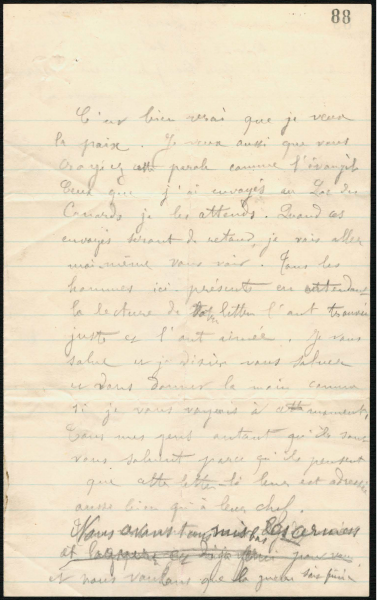 88
C'est bien vrai que je veux
la paix. Je veux aussi que vous
croyiez cette parole comme l'évangile
Ceux que j'ai envoyés au Lac des
Canards je les attends. Quand ces
envoyés seront de retour, je vais aller
moi-même vous voir. Tous les
hommes ici présents en entendant
la lecture de votre lettre l'ont trouvée
juste et l'ont aimée. Je vous
salue et je désire vous saluer
et vous donner la main comme
si je vous voyais à cette moment,
Tous mes gens autant qu'ils sont
vous saluent parce qu'ils pensent
que cette lettre-là leur est adressée
aussi bien qu'à leur chef.
Nous avons tous mis bas les armes
et la guerre est
et nous voulons que la guerre soit finie